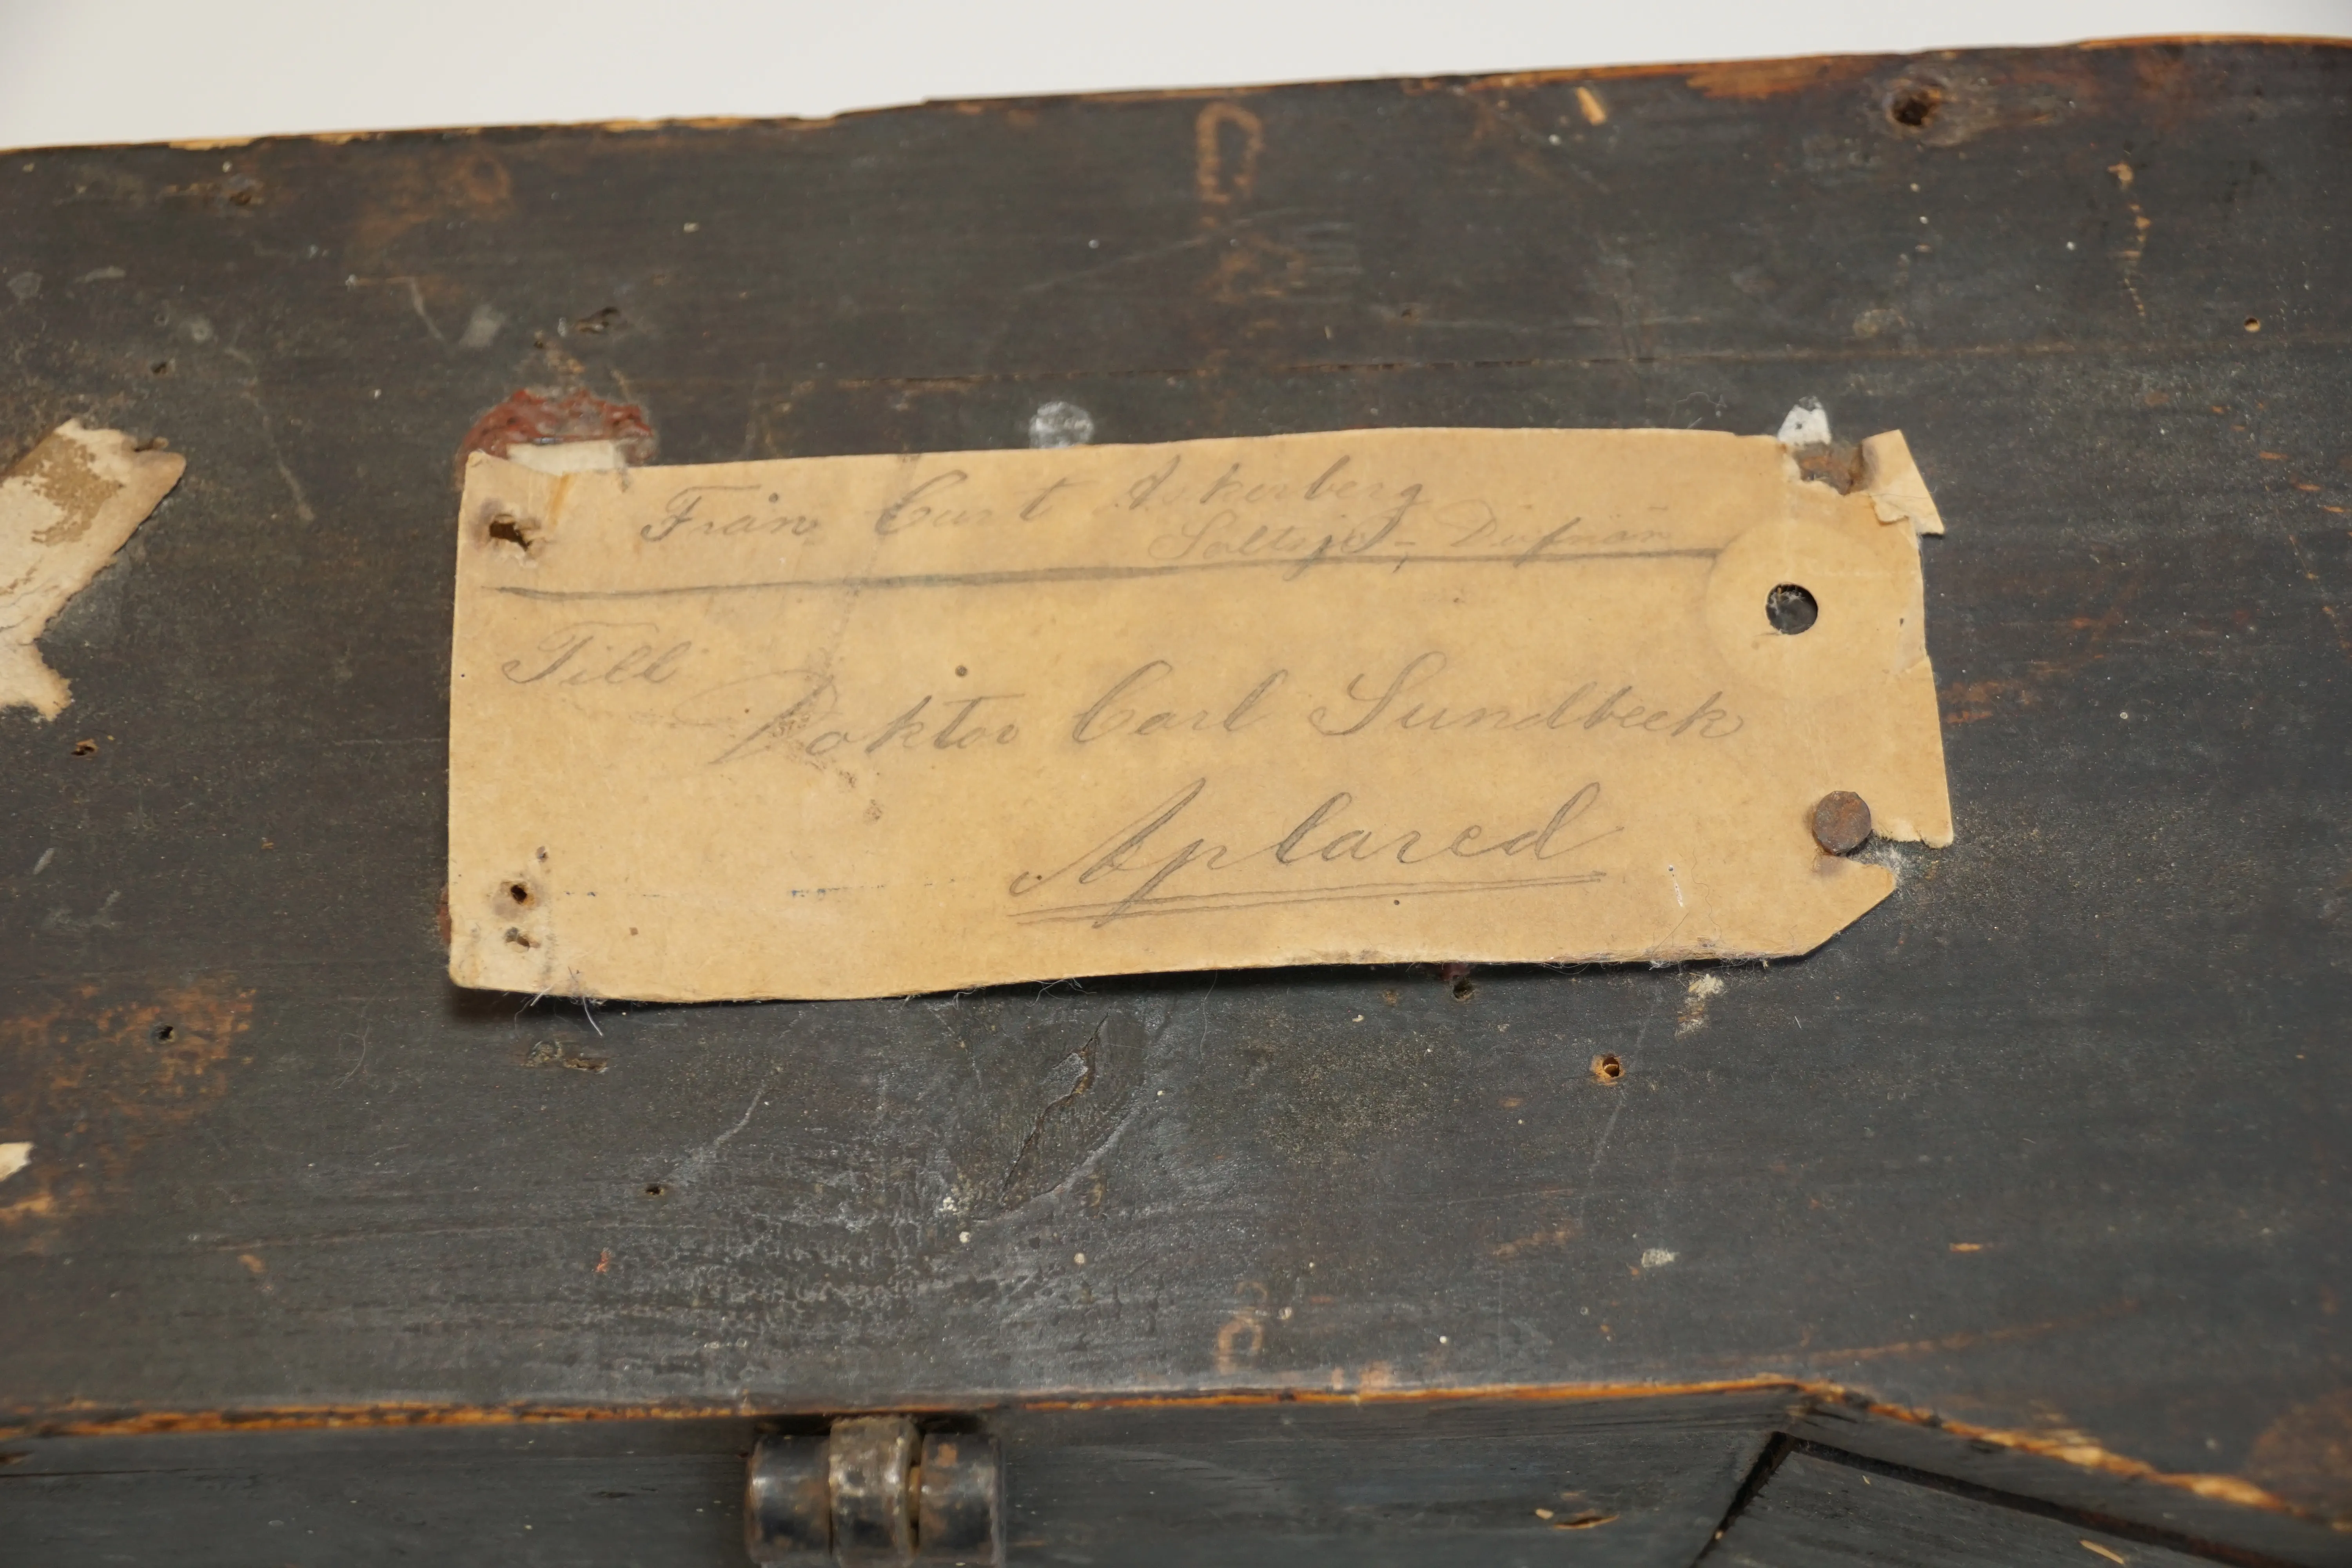 Från Curt Askerberg
Saltsjö-Dufnän
Till
Doktor Carl Sundbeck
Aplared